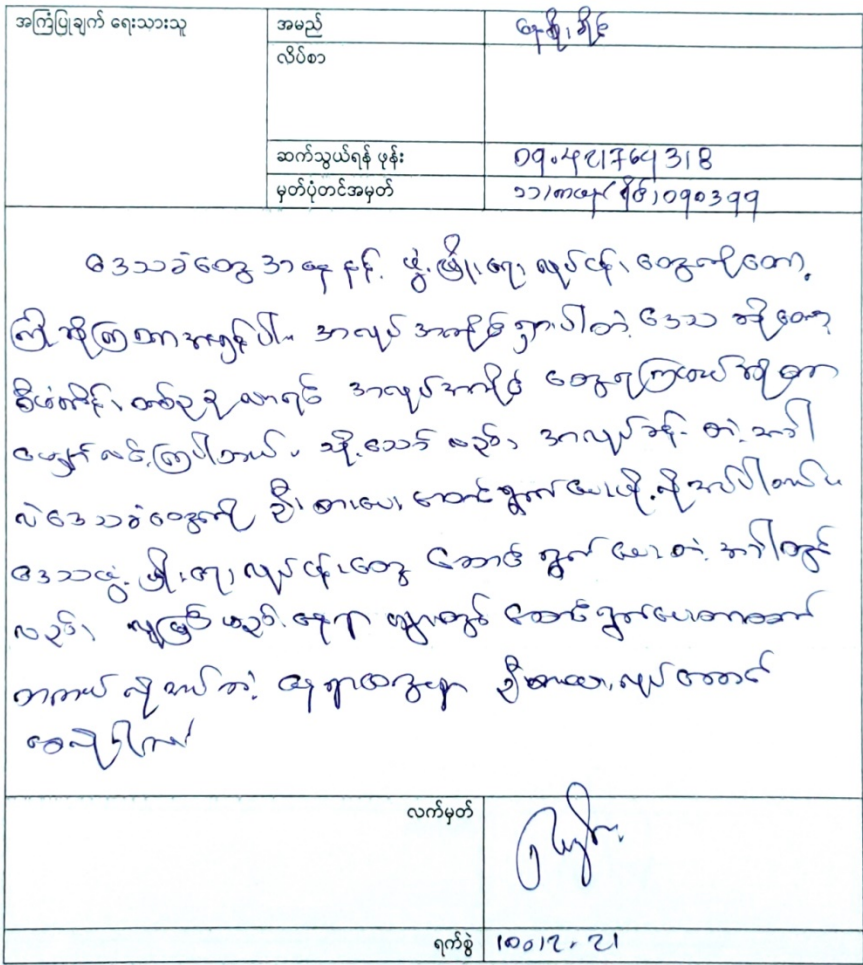 အကြံပြုချက် ရေးသားသူ
အမည် နေစိုးနိုင်
လိပ်စာ
ဆက်သွယ်ရန် ဖုန်း 09.421764318
မှတ်ပုံတင်အမှတ် ၁၁/ (နိုင်) ၀၅၀၃၅၅
ဒေသခံတွေ အနေနှင့် ဖွံ့ဖြိုးရေးလုပ်ငန်းတွေကိုတော့
ကြိုဆိုကြတာအမှန်ပါ။ အလုပ်အကိုင်ရှားပါးတဲ့ ဒေသဆိုတော့
စီမံကိန်းတစ်ခုခုလာရင် အလုပ်အကိုင်တွေရကြမယ်ဆိုတာ
မျှော်လင့်ကြပါတယ်။ သို့သော်လည်း အလုပ်ခန့်တဲ့အခါ
လဲဒေသခံတွေကို ဦးစားပေး ဆောင်ရွက်ပေးဖို့လိုအပ်ပါတယ်။
ဒေသဖွံ့ဖြိုးရေးလုပ်ငန်းတွေ ဆောင်ရွက်ပေးတဲ့အခါတွင်
လည်း လူမြင်မည့်နေရာများတွင် ဆောင်ရွက်ပေးတာထက်
တကယ်လိုအပ်တဲ့နေရာတွေမှာ ဦးစားပေးလုပ်ဆောင်
စေလိုပါတယ်
လက်မှတ်
ရက်စွဲ 10.12.21